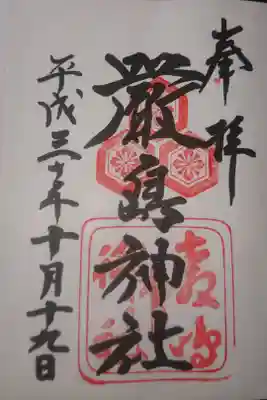 奉拝
嚴島神社
平成三十年十月十九日